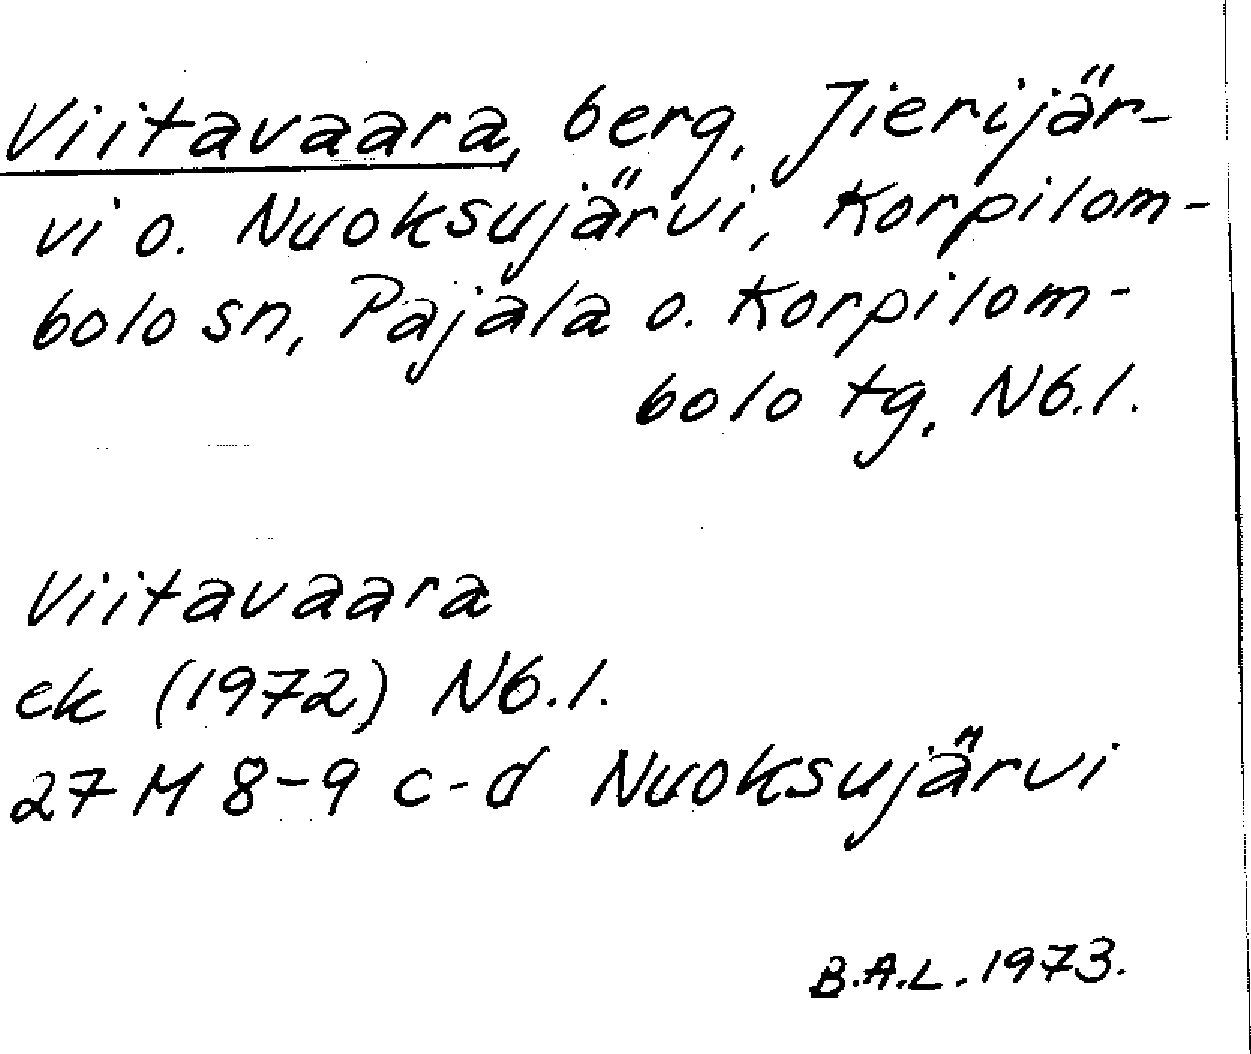 Viitavaara, berg, Jierijär-
vi o. Nuoksujärvi, Korpilom-
bolo sn, Pajala o. Korpilom-
bolo tg, Nb.l.
Viitavaara
ek (1972) Nb.l.
27 M 8-9 c-d Nuoksujärvi
B.A.L. 1973.